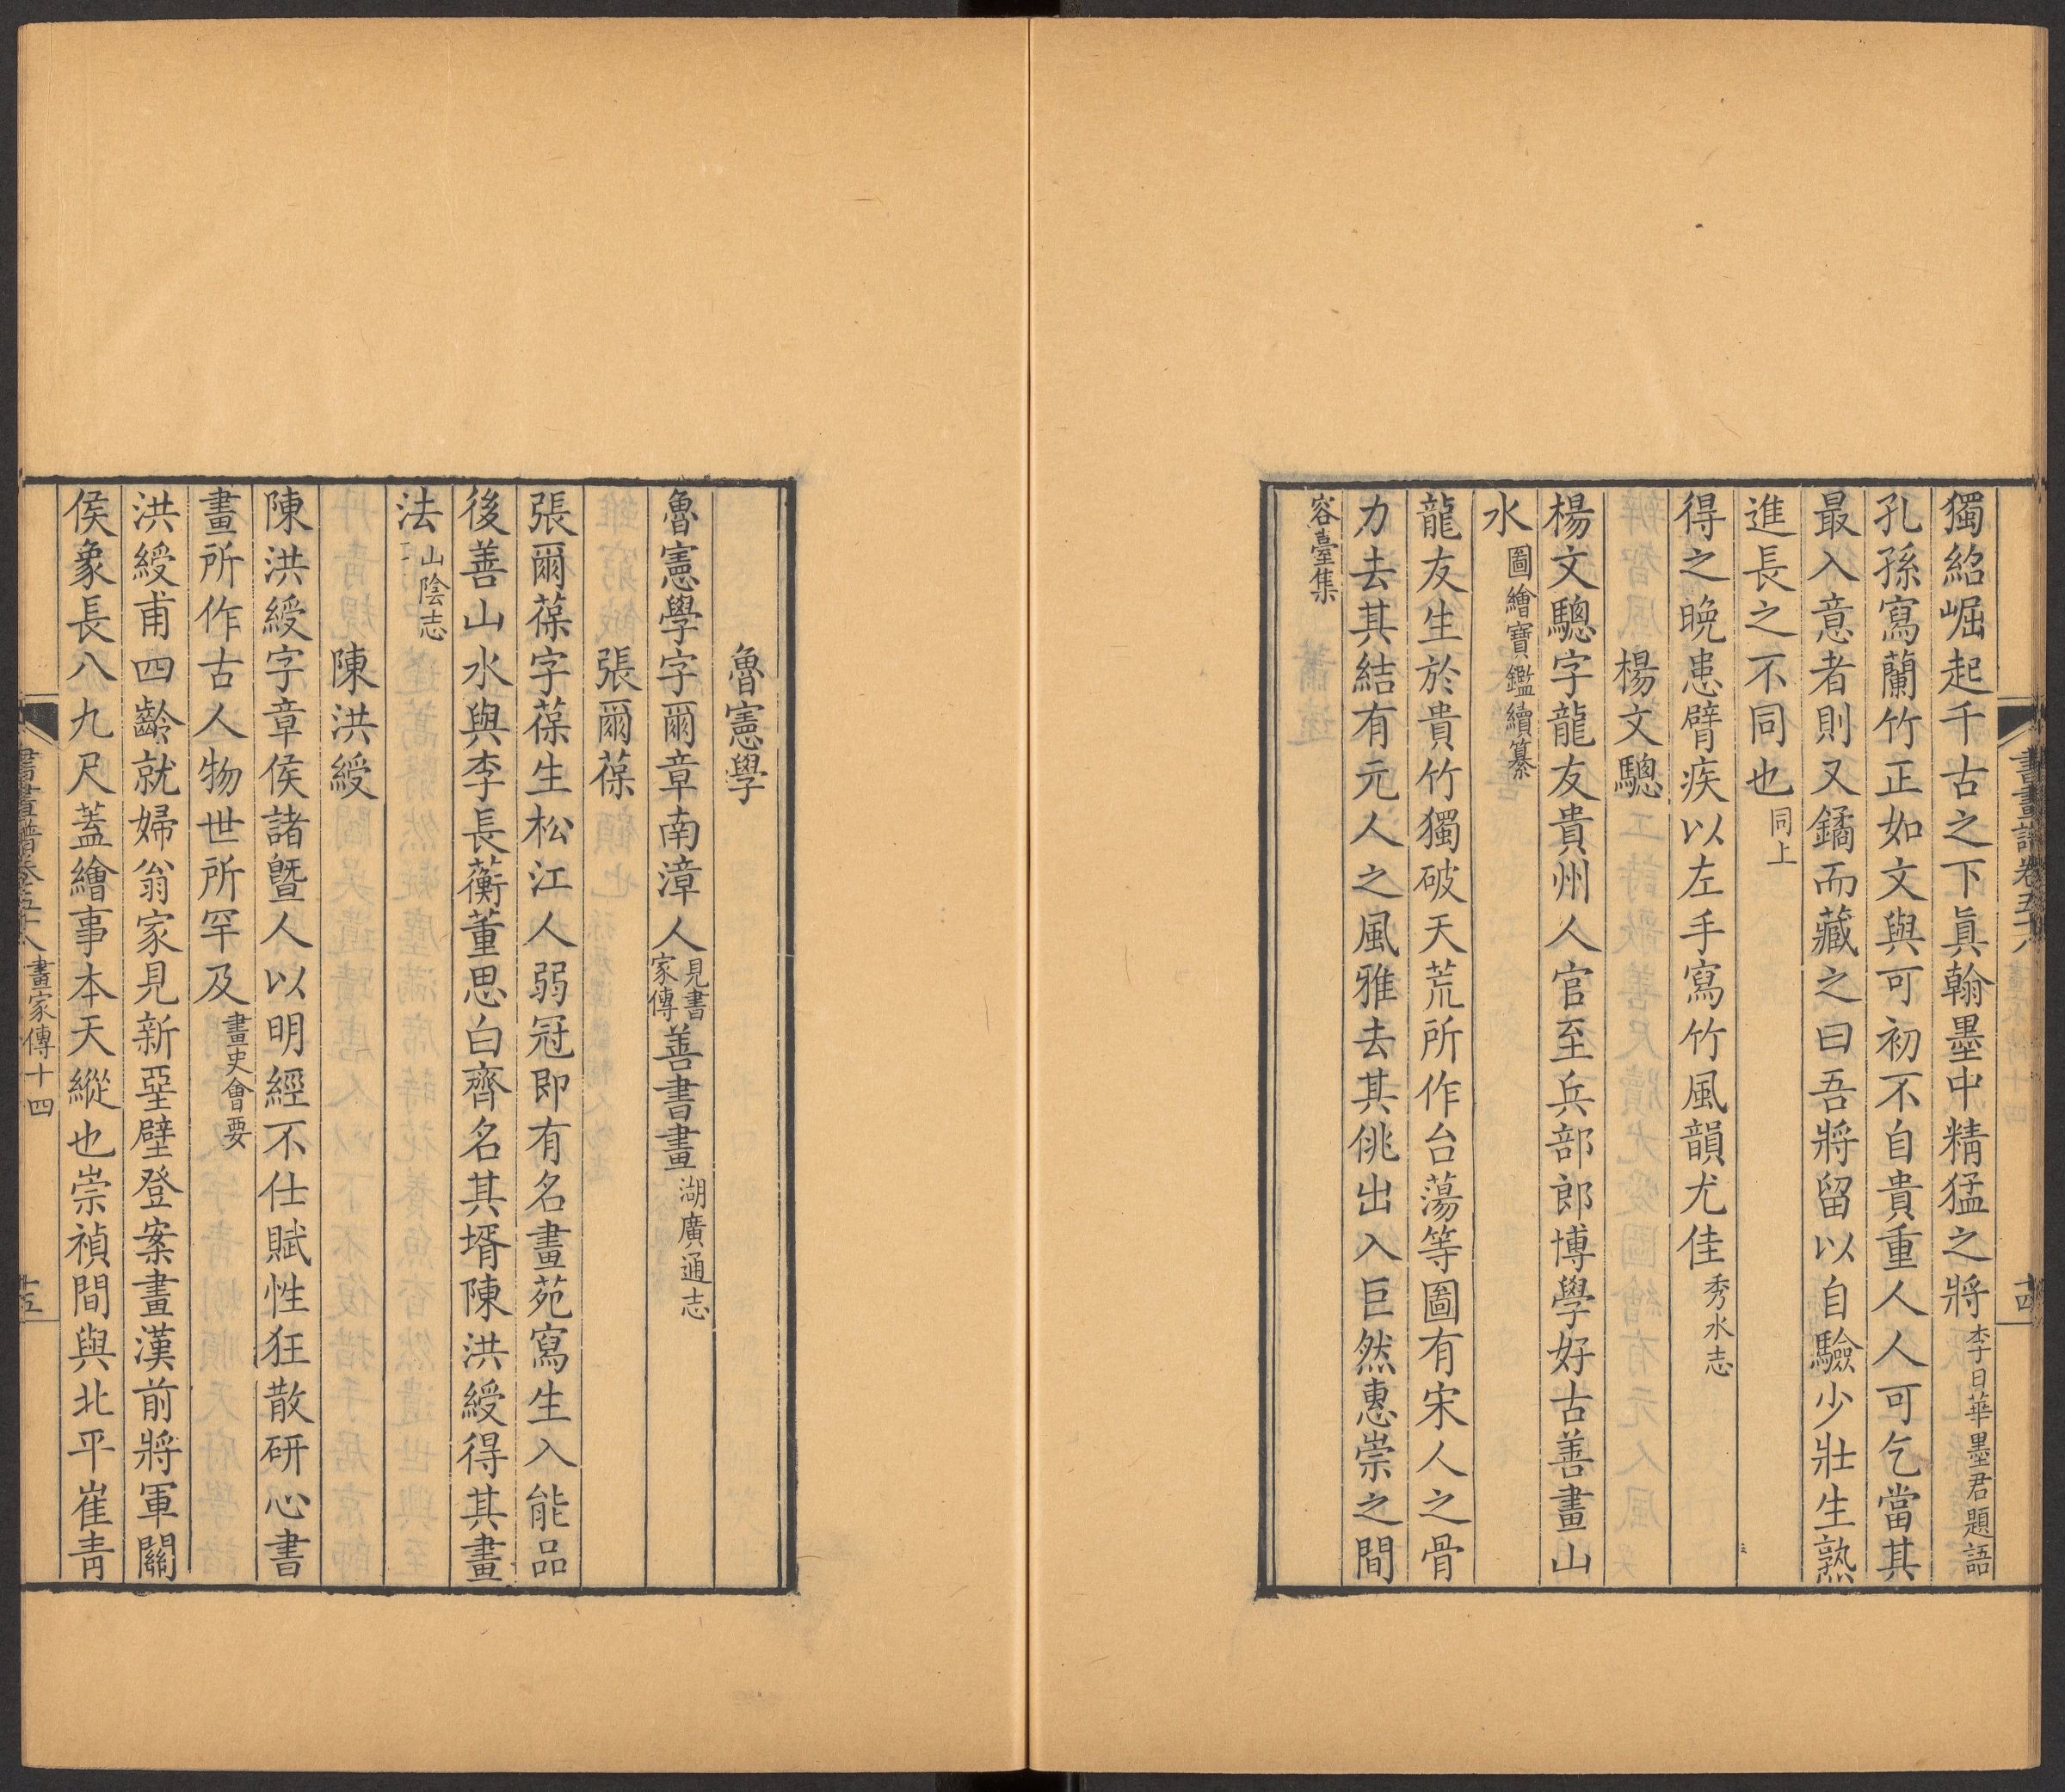 獨紹崛起千古之下真翰墨中精猛之將李日華墨君題語
孔孫寫蘭竹正如文與可初不自貴重人人可乞當其
最入意者則又鐍而藏之曰吾將留以自驗少壯生熟
進長之不同也同上
得之晚患臂疾以左手寫竹風韻尤佳秀水志
楊文驄
楊文驄字龍友貴州人官至兵部郎博學好古善畫山
水圖繪寶鑑續纂
龍友生於貴竹獨破天荒所作台蕩等圖有宋人之骨
力去其結有元人之風雅去其佻出入巨然惠崇之間
容臺集
魯憲學
魯憲學字爾章南漳人見書家傳善書畫湖廣通志
張爾葆
張爾葆字葆生松江人弱冠即有名畫苑寫生入能品
後善山水與李長蘅董思白齊名其壻陳洪綬得其畫
法山陰志
陳洪綬
陳洪綬字章侯諸暨人以明經不仕賦性狂散研心書
畫所作古人物世所罕及畫史會要
洪綬甫四齡就婦翁家見新堊壁登案畫漢前將軍關
侯象長八九尺蓋繪事本天縱也崇禎間與北平崔青
書畫譜卷五十八 畫家傳十四 十五